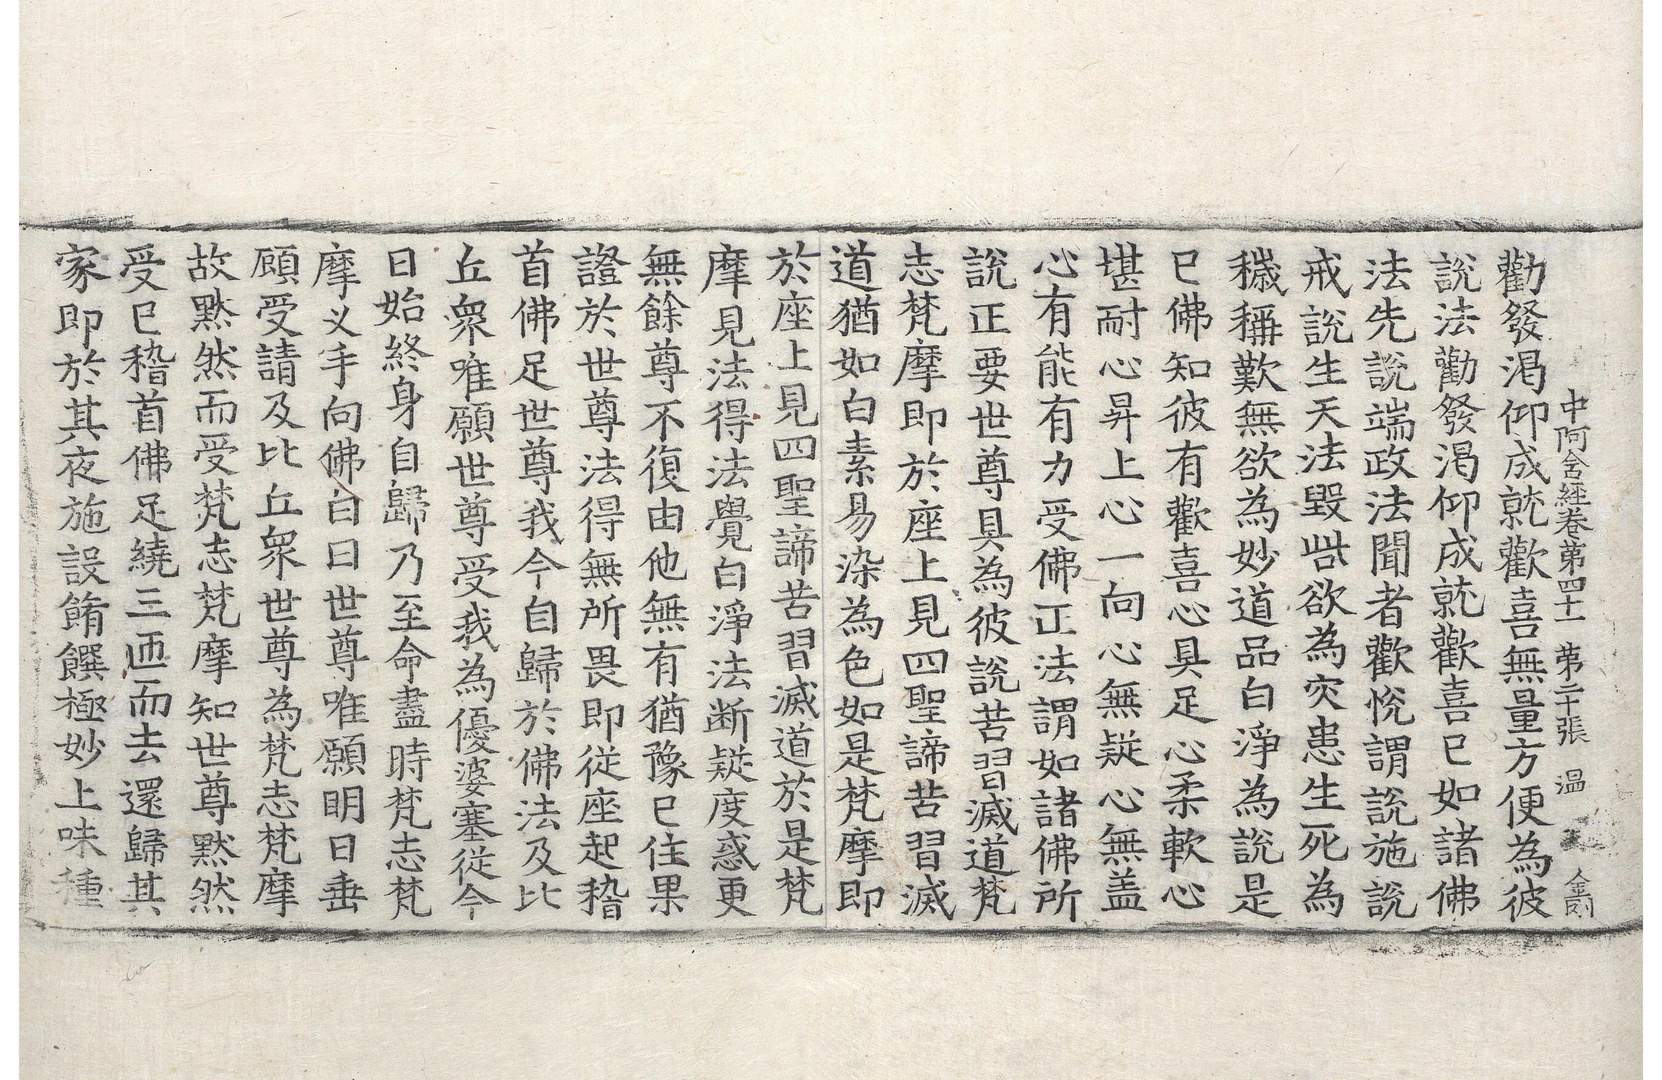 中阿含經卷第四十一 第二十張 温
勸發渴仰成就歡喜無量方便為彼
說法勸發渴仰成就歡喜已如諸佛
法先說端政法聞者歡悅謂說施說
戒說生天法毀呰欲為灾患生死為
穢稱歎無欲為妙道品白淨為說是
已佛知彼有歡喜心具足心柔軟心
堪耐心昇上心一向心無疑心無盖
心有能有力受佛正法謂如諸佛所
說正要世尊具為彼說苦習滅道梵
志梵摩即於座上見四聖諦苦習滅
道猶如白素易染為色如是梵摩即
於座上見四聖諦苦習滅道於是梵
摩見法得法覺白淨法断疑度惑更
無餘尊不復由他無有猶豫已住果
證於世尊法得無所畏即從座起稽
首佛足世尊我今自歸於佛法及比
丘衆唯願世尊受我為優婆塞從今
日始終身自歸乃至命盡時梵志梵
摩叉手向佛白曰世尊唯願明日垂
顧受請及比丘衆世尊為梵志梵摩
故默然而受梵志梵摩知世尊默然
受已稽首佛足繞三匝而去還歸其
家即於其夜施設餚饌極妙上味種